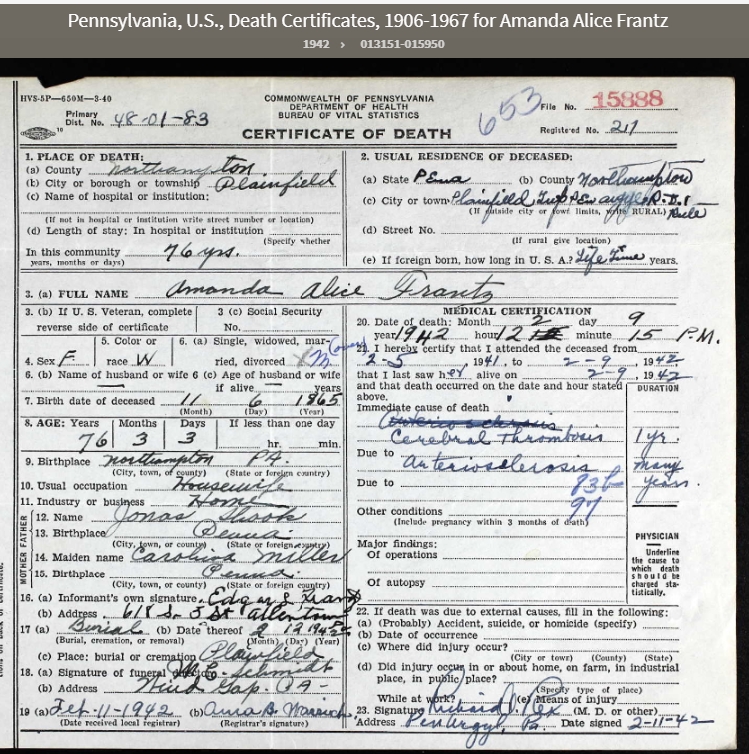 Pennsylvania, U.S., Death Certificates, 1906-1967 for Amanda Alice Frantz
1942 › 013151-015950
HVS-5P—650M—3-40
COMMONWEALTH OF PENNSYLVANIA
DEPARTMENT OF HEALTH
BUREAU OF VITAL STATISTICS
CERTIFICATE OF DEATH
Primary
Dist. No. 48-01-83
653
File No. 15888
Registered No. 217
1. PLACE OF DEATH:
(a) County Northampton
(b) City or borough or township Plainfield
(c) Name of hospital or institution:
(If not in hospital or institution write street number or location)
(d) Length of stay: In hospital or institution
(Specify whether
In this community 76 yrs.
years, months or days)
2. USUAL RESIDENCE OF DECEASED:
(a) State Penna (b) County Northampton
(c) City or town Plainfield Twp Pen Argyl R.D.1
(If outside city or town limits, write RURAL)
(d) Street No.
(If rural give location)
(e) If foreign born, how long in U. S. A.? Life Time years.
3. (a) FULL NAME Amanda Alice Frantz
3. (b) If U. S. Veteran, complete
reverse side of certificate
3 (c) Social Security
No.
4. Sex F.
5. Color or
race W
6. (a) Single, widowed, mar-
ried, divorced M
6. (b) Name of husband or wife 6 (c) Age of husband or wife
if alive years
7. Birth date of deceased 11 6 1865
(Month) (Day) (Year)
8. AGE: Years Months Days If less than one day
76 3 3 hr. min.
9. Birthplace Northampton PA.
(City, town, or county) (State or foreign country)
10. Usual occupation Housewife
11. Industry or business Home
MOTHER FATHER
12. Name Jonas
13. Birthplace Penna
(City, town, or county) (State or foreign country)
14. Maiden name Carolina Miller
15. Birthplace Penna.
(City, town, or county) (State or foreign country)
16. (a) Informant's own signature Edgar S. Frantz
(b) Address 618 S. 5 St Allentown
17 (a) Burial (b) Date thereof 2 12 1942
(Burial, cremation, or removal) (Month) (Day) (Year)
(c) Place: burial or cremation Plainfield
18. (a) Signature of funeral director Schmidt
(b) Address Wind Gap. PA
19 (a) Feb-11-1942 (b) Anna B.
(Date received local registrar) (Registrar's signature)
MEDICAL CERTIFICATION
20. Date of death: Month 2 day 9
year 1942 hour 12 minute 15 P.M.
21. I hereby certify that I attended the deceased from
2-5, 1941, to 2-9, 1942
that I last saw her alive on 2-9, 1942
and that death occurred on the date and hour stated
above.
DURATION
Immediate cause of death
Arteriosclerosis
Cerebral Thrombosis 1 yr.
Due to Arteriosclerosis many
Due to years.
83b
97
Other conditions
(Include pregnancy within 3 months of death)
Major findings:
Of operations
Of autopsy
PHYSICIAN
Underline
the cause to
which death
should be
charged sta-
tistically.
22. If death was due to external causes, fill in the following:
(a) (Probably) Accident, suicide, or homicide (specify)
(b) Date of occurrence
(c) Where did injury occur?
(City or town) (County) (State)
(d) Did injury occur in or about home, on farm, in industrial
place, in public place?
(Specify type of place)
While at work? (e) Means of injury
23. Signature Richard J. Rex (M. D. or other)
Address Pen Argyl, Pa. Date signed 2-11-42